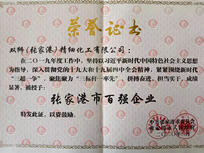 荣誉证书
双狮（张家港）精细化工有限公司：
在二〇一九年度工作中，坚持以习近平新时代中国特色社会主义思想
为指导，深入贯彻党的十九大和十九届四中全会精神，紧紧围绕新时代
担当实干，成绩
显著，被授予：
张家港市百强企业
特发此证，以资鼓励。